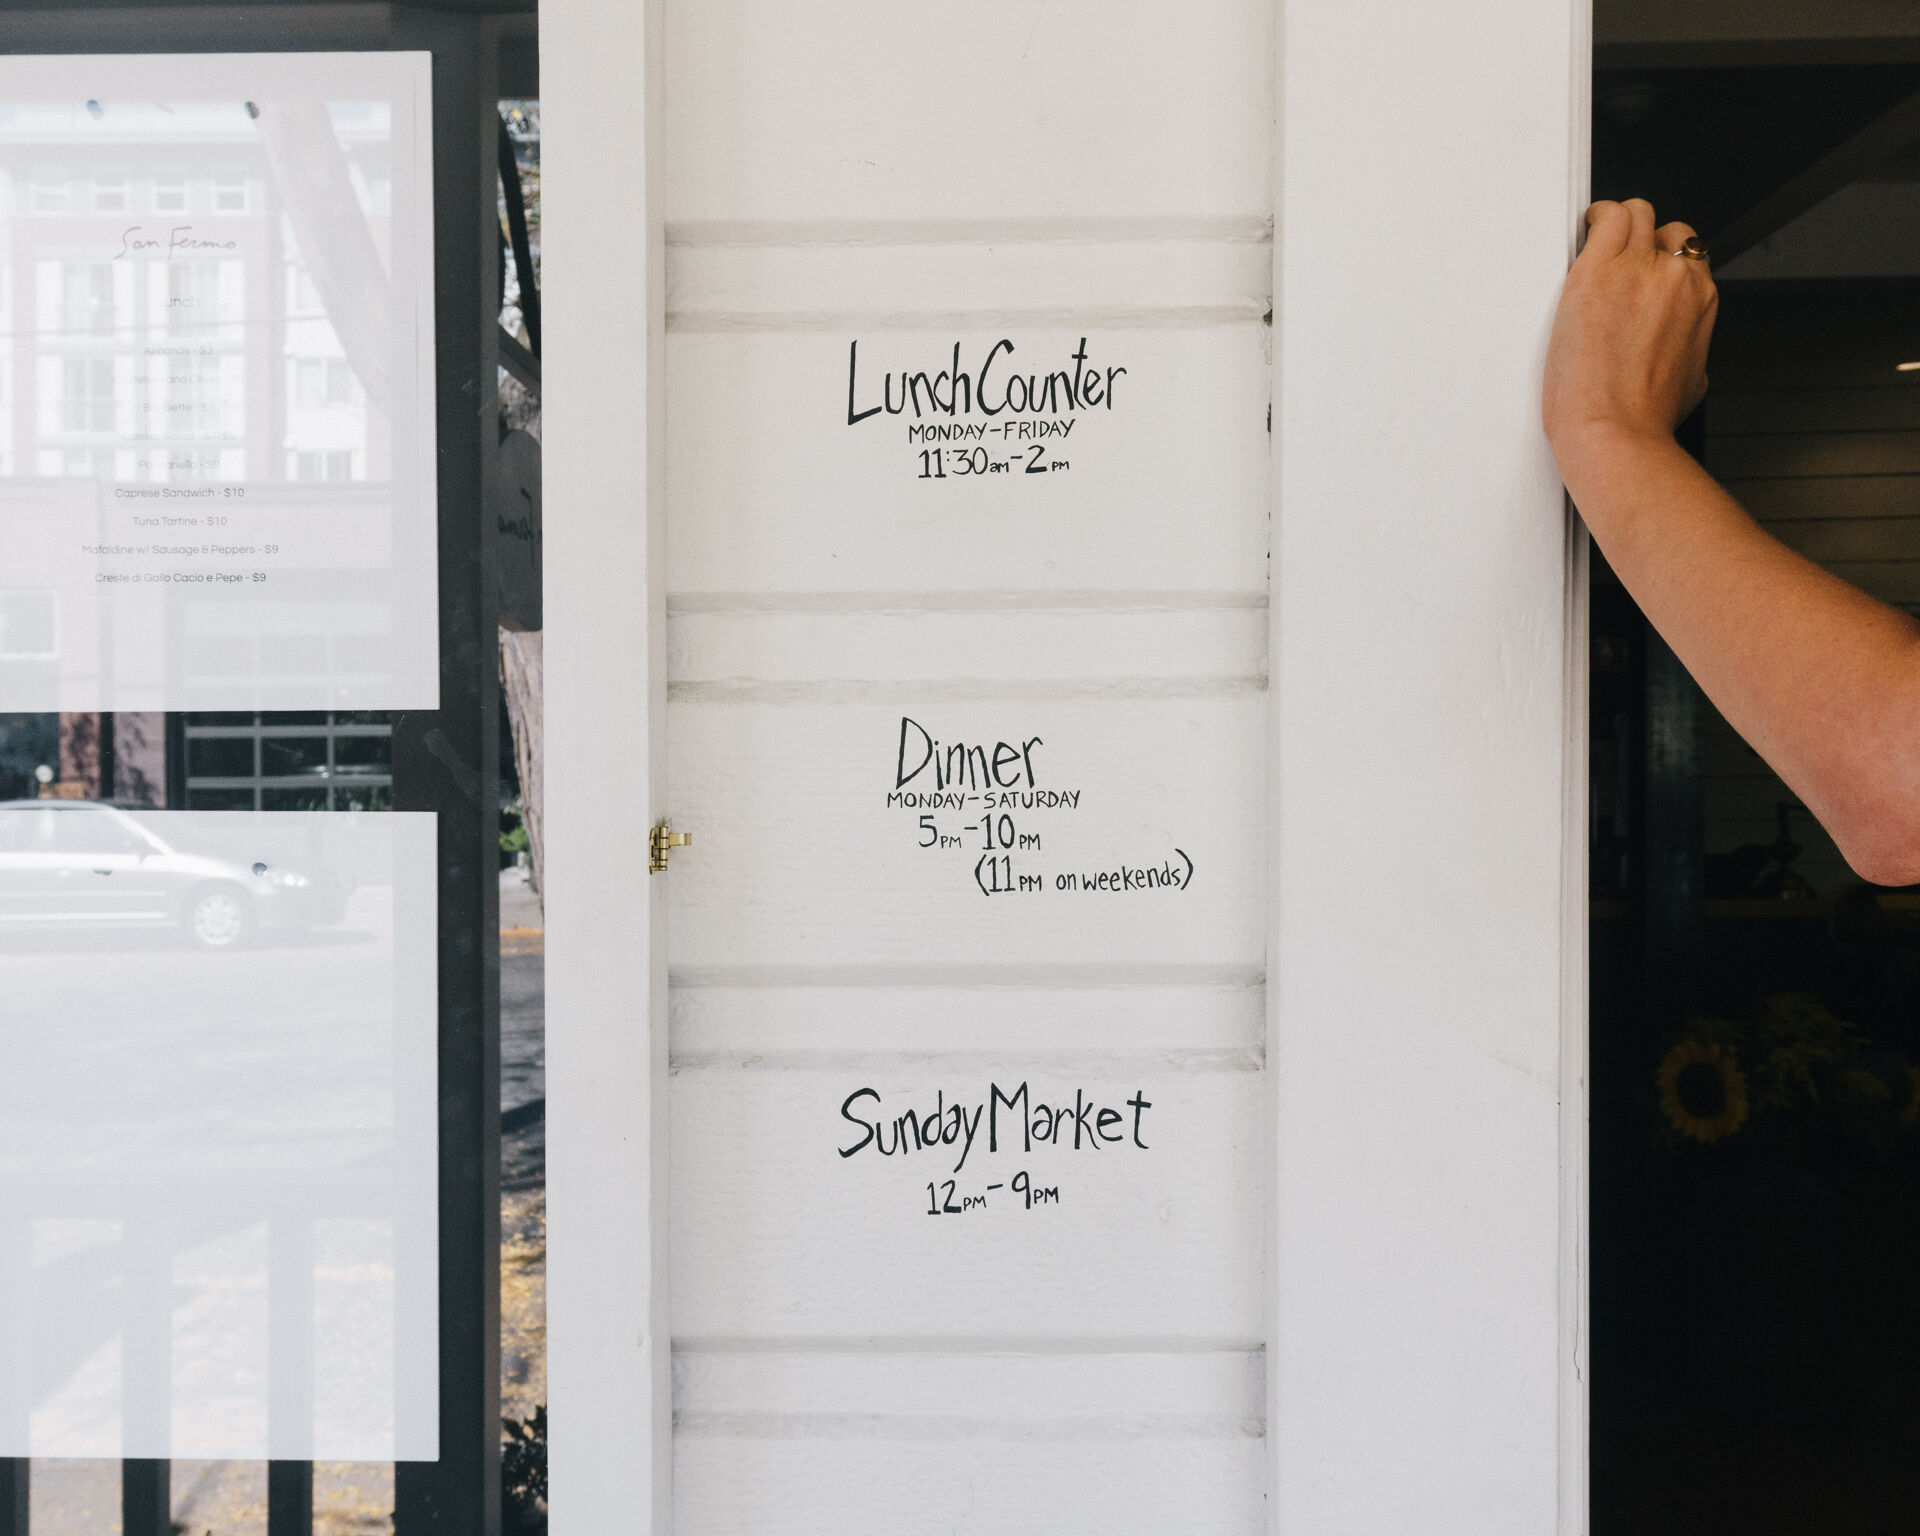 San Fermo
Lunch
Almonds - $3
Castelvetrano Olives - $5
Baguette - $3
Salad - $7/$9
Panzanella - $9
Caprese Sandwich - $10
Tuna Tartine - $10
Mafaldine w/ Sausage & Peppers - $9
Creste di Gallo Cacio e Pepe - $9
Lunch Counter
MONDAY-FRIDAY
11:30am-2PM
Dinner
MONDAY-SATURDAY
5PM-10PM
(11PM on weekends)
Sunday Market
12PM-9PM